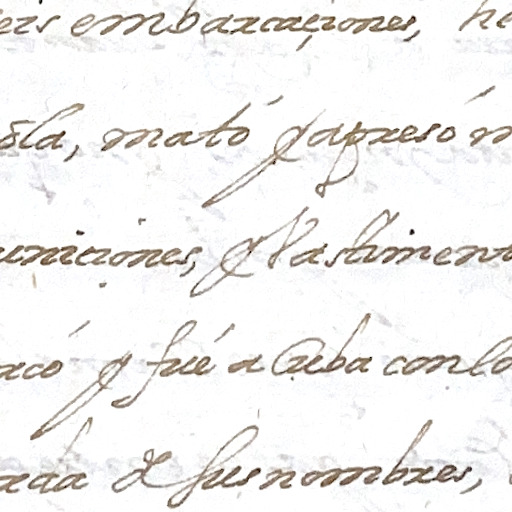 eis embarcaçiones, he
ōla, mató y apresó m
uniciones, y Bastiment
acó y fué a Cuba con lo
ada de sus nombres,